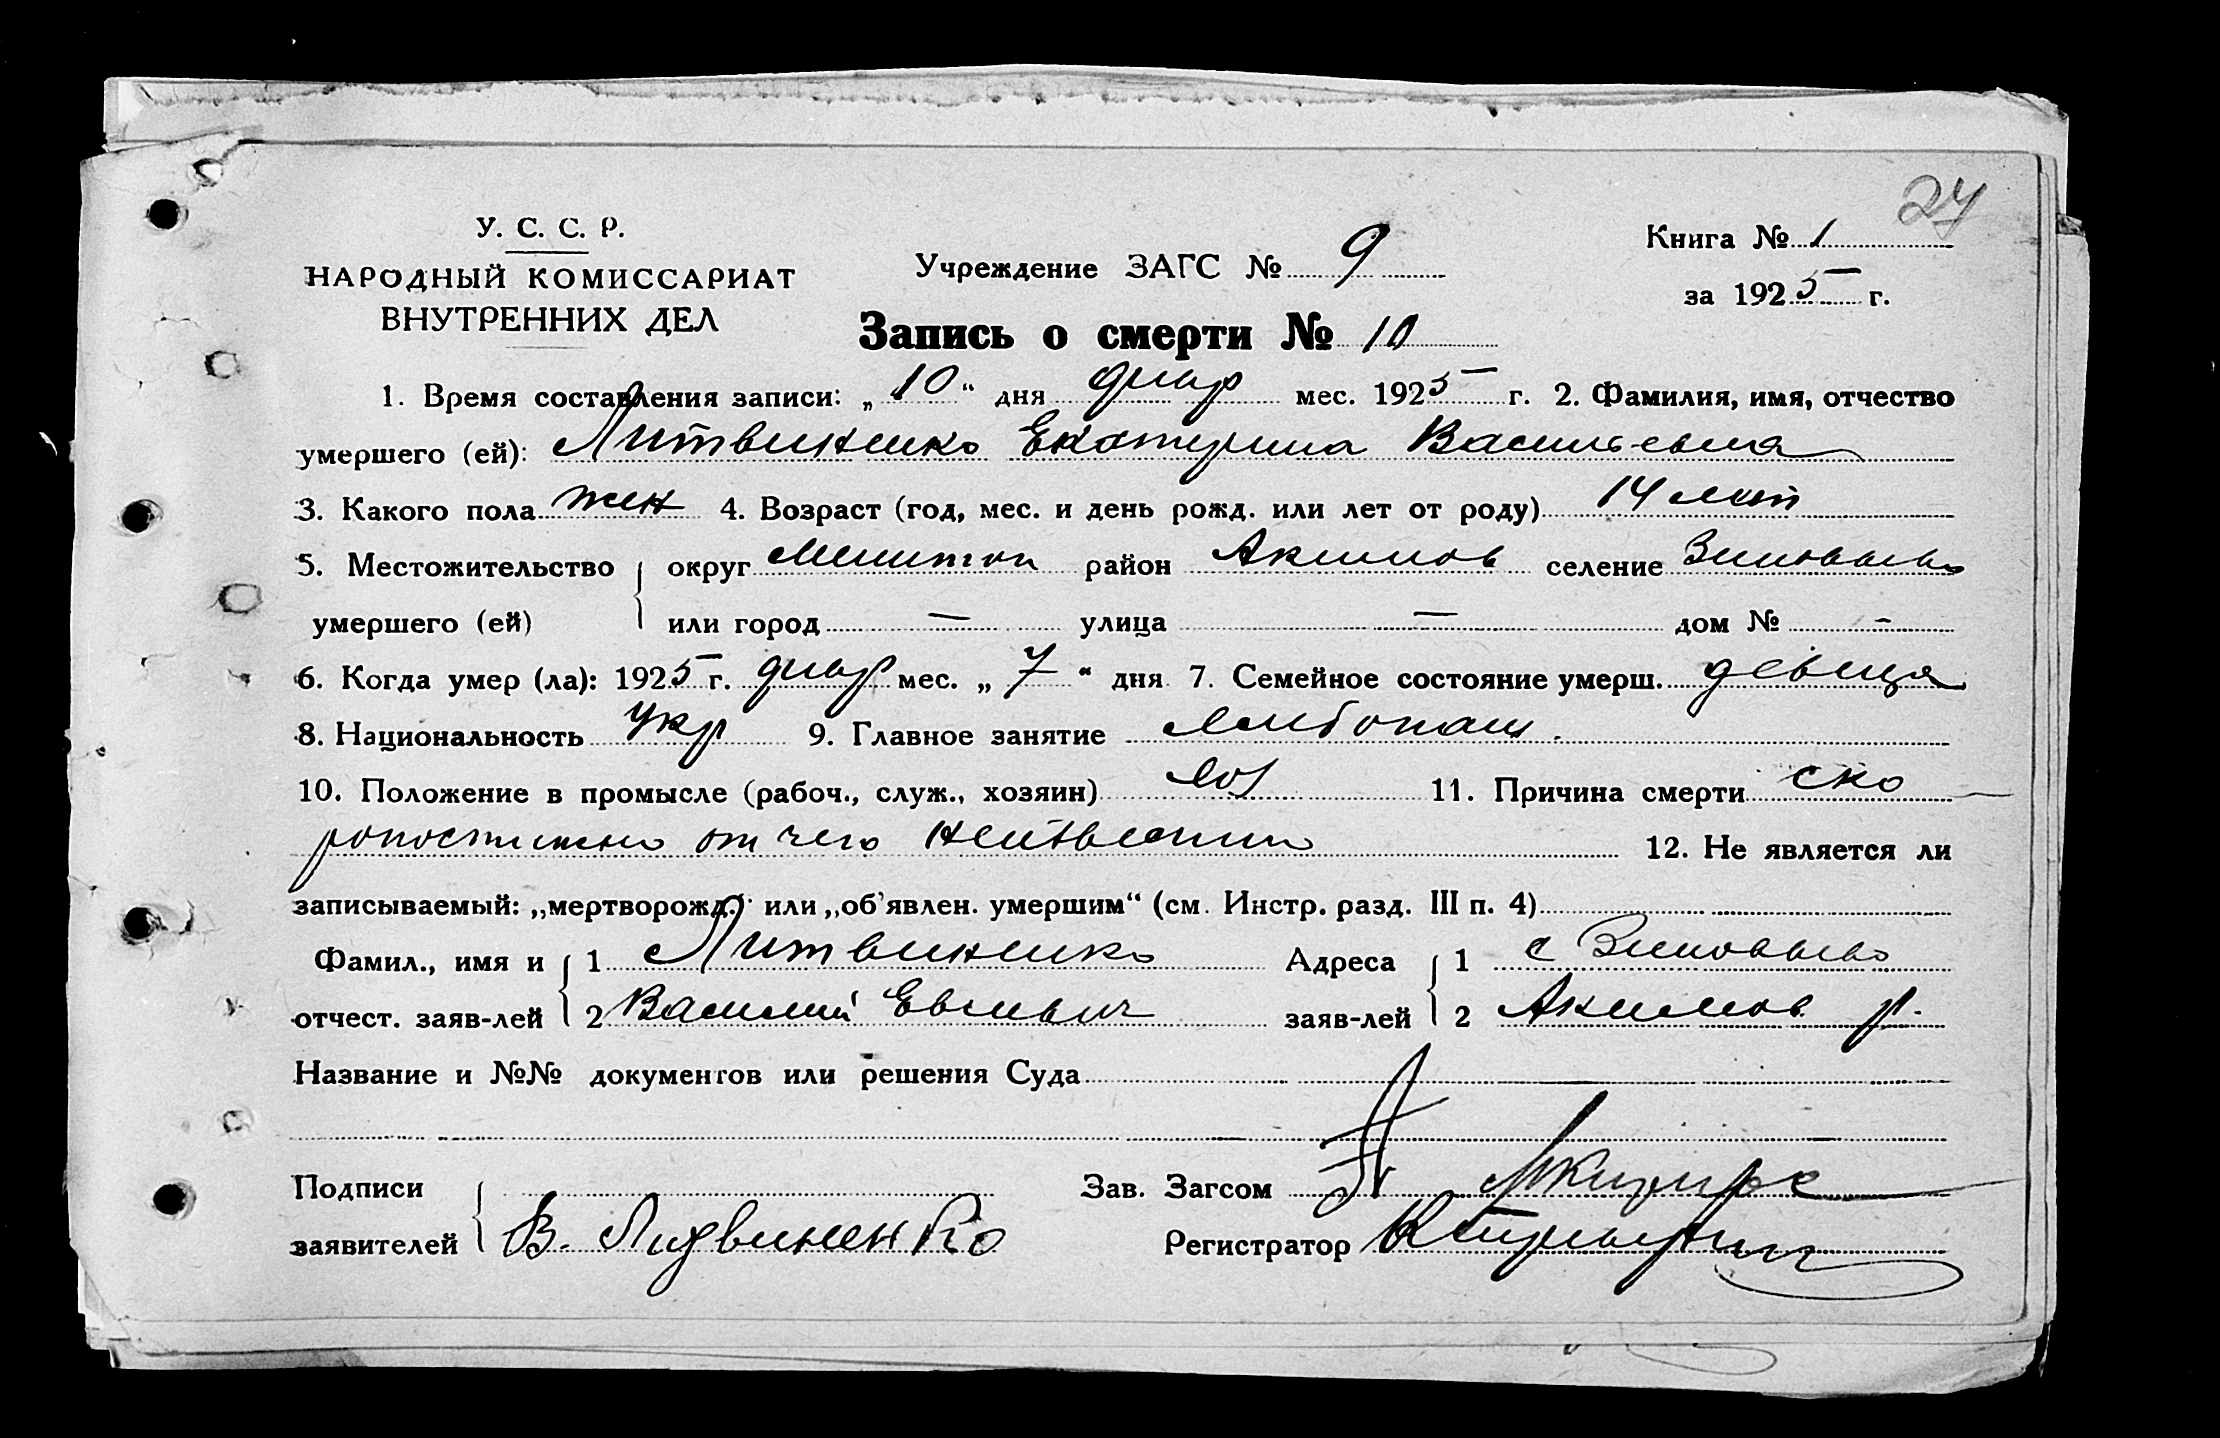 24
У. С. С. Р.
НАРОДНЫЙ КОМИССАРИАТ
ВНУТРЕННИХ ДЕЛ
Учреждение ЗАГС № 9
Книга № 1
за 1925 г.
Запись о смерти № 10
1. Время составления записи: „10“ дня мес. 1925 г. 2. Фамилия, имя, отчество
умершего (ей): Литвиненко Екатерина Васильевна
3. Какого пола жен 4. Возраст (год, мес. и день рожд. или лет от роду) 14 лет
5. Местожительство округ Мелитоп район Акимов селение
умершего (ей) или город — улица — дом № -
6. Когда умер (ла): 1925 г. мес. „7“ дня 7. Семейное состояние умерш. девица
8. Национальность Укр 9. Главное занятие хлебопаш.
10. Положение в промысле (рабоч., служ., хозяин) 11. Причина смерти ско
ропостижно от чего неизвестно 12. Не является ли
записываемый: „мертворожд.“ или „об'явлен. умершим“ (см. Инстр. разд. III п. 4)
Фамил., имя и 1 Литвиненко Адреса 1 с
отчест. заяв-лей 2 Василий заяв-лей 2 Акимов р.
Название и №№ документов или решения Суда
Подписи Зав. Загсом
заявителей В. Лидвиненко Регистратор